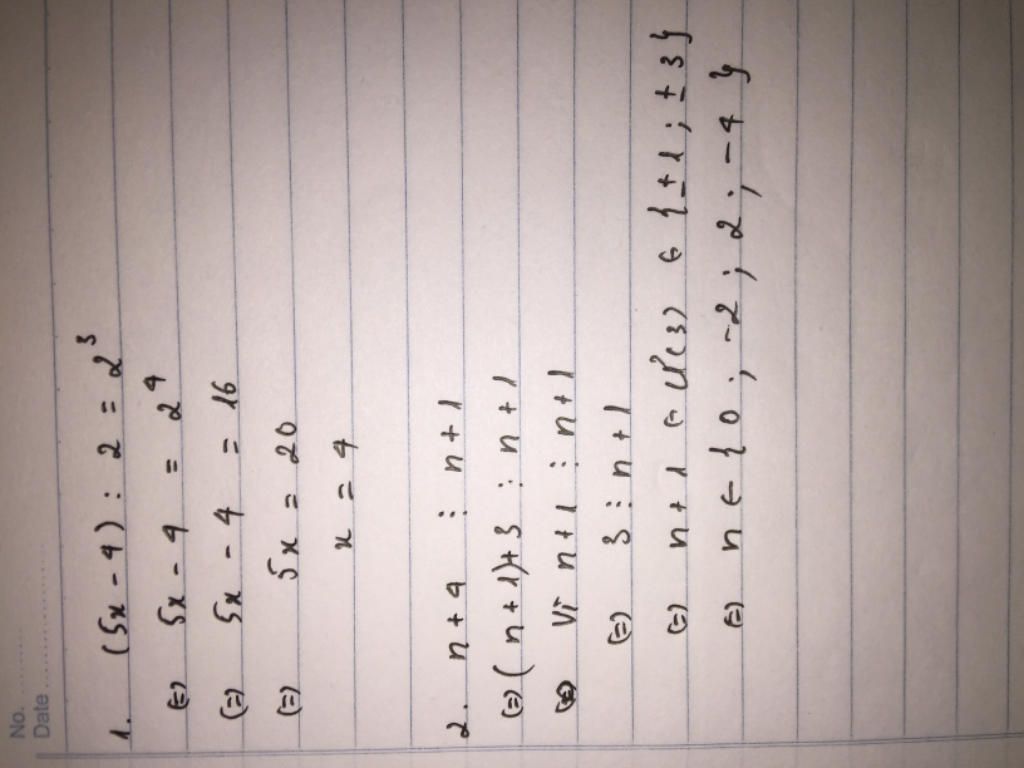 No. ........
Date ....................
1. (5x - 4) : 2 = 2³
(=) 5x - 4 = 2⁴
(=) 5x - 4 = 16
(=) 5x = 20
x = 4
2. n + 4 ⋮ n + 1
(=) (n + 1) + 3 ⋮ n + 1
(=) Vì n + 1 ⋮ n + 1
(=) 3 ⋮ n + 1
(=) n + 1 ∈ Ư(3) ∈ {±1 ; ±3}
(=) n ∈ {0 ; -2 ; 2 ; -4}